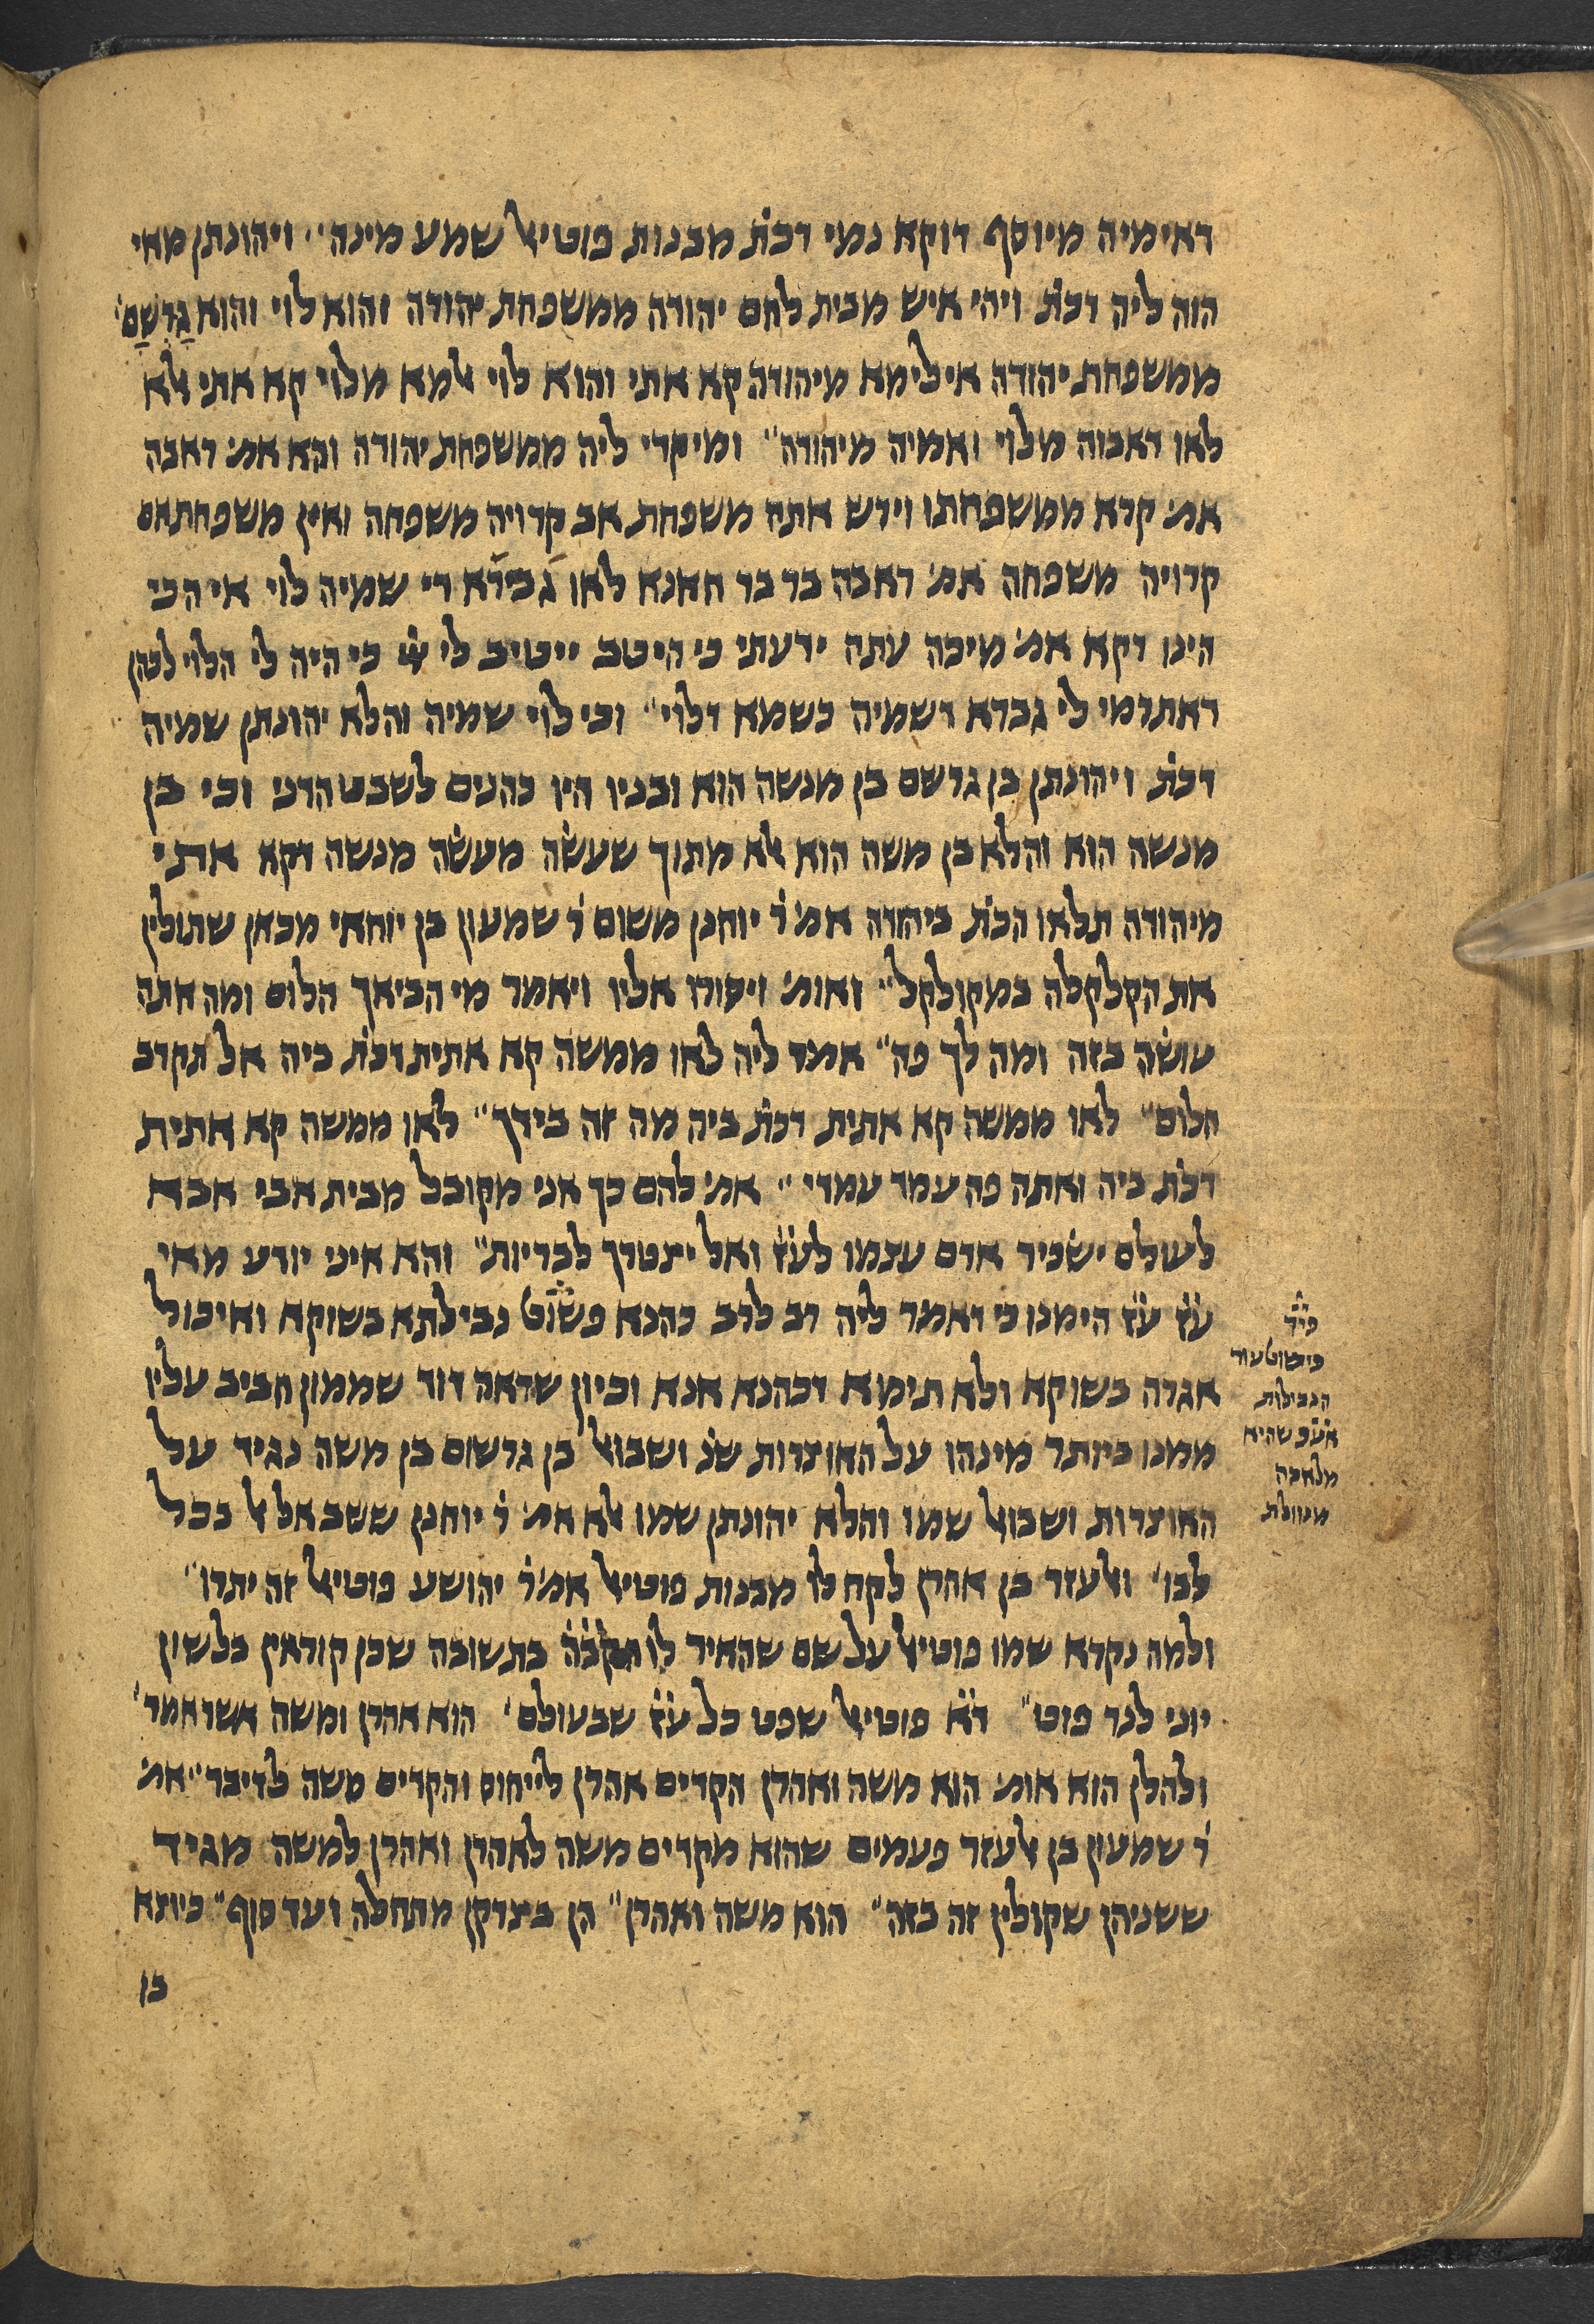 דאימיה מיוסף דוקא נמי דכת׳ מבנות פוטיאל שמע מינה״ ויהונתן מאי
הוה ליה דכת׳ ויהי איש מבית לחם יהודה ממשפחת יהודה והוא לוי והוא גר שם׳
ממשפחת יהודה אילימא מיהודה קא אתי והוא לוי אלמא מלוי קא אתי אלא
לאו דאבוה מלוי ואמיה מיהודה״ ומיקרי ליה ממשפחת יהודה והא אמ׳ ראבה
אמ׳ קרא ממשפחתו וירש אתה משפחת אב קרויה משפחה ואין משפחת אם
קרויה משפחה אמ׳ ראבה בר בר חאנא לאו גבירא די שמיה לוי אי הכי
הינו דקא אמ׳ מיכה עתה ידעתי כי היטב ייטיב לי ש׳ כי היה לי הלוי לכהן
דאתרמי לי גברא דשמיה כשמא דלוי״ וכי לוי שמיה והלא יהונתן שמיה
דכת׳ ויהונתן בן גרשם בן מנשה הוא ובניו היו כהנים לשבט הדני וכי בן
מנשה הוא והלא בן משה הוא אלא מתוך שעשה מעשה מנשה דקא אתי
מיהודה תלאו הכת׳ ביהודה אמ׳ ר׳ יוחנן משום ר׳ שמעון בן יוחאי מכאן שתולין
את הקלקלה במקולקל״ ואומ׳ ויסורו אליו ויאמר מי הביאך הלום ומה אתה
עושה בזה ומה לך פה״ אמר ליה לאו ממשה קא אתית דכת׳ ביה אל תקרב
הלום״ לאו ממשה קא אתית דכת׳ ביה מה זה בידך״ לאו ממשה קא אתית
דכת׳ ביה ואתה פה עמד עמדי״ אמ׳ להם כך אני מקובל מבית אבי אבא
לעולם ישכיר אדם עצמו לע״ז ואל יצטרך לבריות״ והא איני יודע מאי
ע״ז ע״ז הימנו כי דאמר ליה רב לרב כהנא פשוט נבילתא בשוקא ואיכול
אגרה בשוקא ולא תימא דכהנא אנא וכיון שראה דוד שממון חביב עליו
ממנו ביותר מינהו על האוצרות שנ׳ ושבואל בן גרשום בן משה נגיד על
האוצרות ושבואל שמו והלא יהונתן שמו אלא אמ׳ ר׳ יוחנן ששב אל אל בכל
לבו׳ ואלעזר בן אהרן לקח לו מבנות פוטיאל אמ׳ ר׳ יהושע פוטיאל זה יתרו״
ולמה נקרא שמו פוטיאל על שם שהאיר לו הקב״ה בתשובה שכן קוראין בלשון
יוני לנר פוט״ ד״א פוטיאל שפט כל ע״ז שבעולם׳ הוא אהרן ומשה אשר אמר׳
ולהלן הוא אומ׳ הוא משה ואהרן הקדים אהרן לייחוס והקדים משה לדיבר״ אמ׳
ר׳ שמעון בן אלעזר פעמים שהוא מקדים משה לאהרן ואהרן למשה מגיד
ששניהן שקולין זה כזה״ הוא משה ואהרן״ הן בצדקן מתחלה ועד סוף״ כיוצא
בו
פיר׳
פישוט עור
הנבילות
אע״פ שהיא
מלאכה
מנוולת